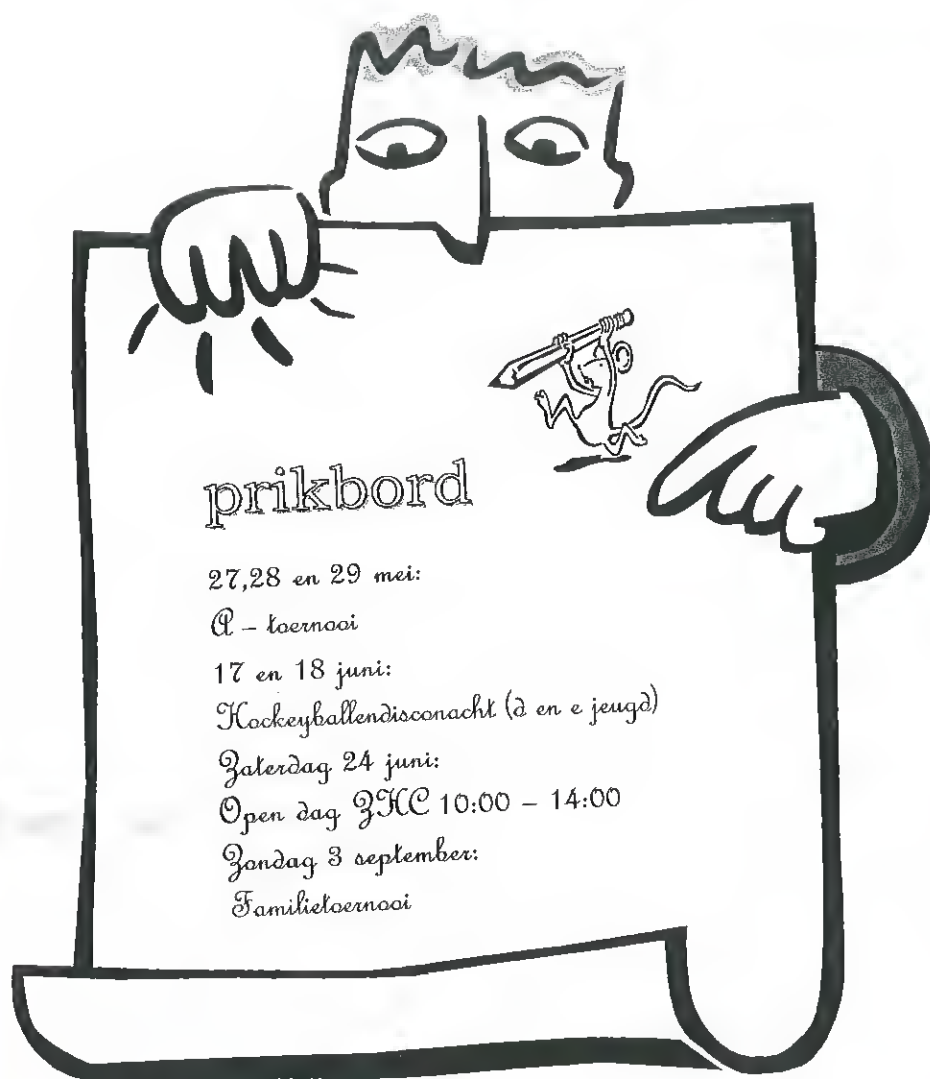 prikbord
27,28 en 29 mei:
A – toernooi
17 en 18 juni:
Hockeyballendisconacht (d en e jeugd)
Zaterdag 24 juni:
Open dag ZHC 10:00 – 14:00
Zondag 3 september:
Familietoernooi